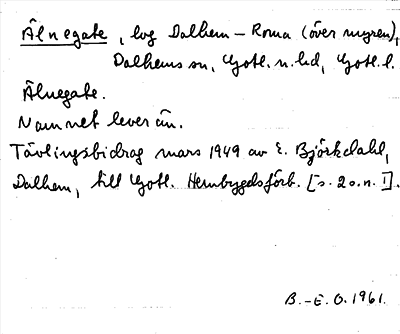 Älnegate, lvg Dalhem – Roma (över myren),
Dalhems sn, Gotl. n. hd, Gotl. l.
Älnegate.
Namnet lever än.
Tävlingsbidrag mars 1949 av E. Björkdahl,
Dalhem, till Gotl. Hembygdsförb. [s. 2 o. n. I].
B.-E. O. 1961.